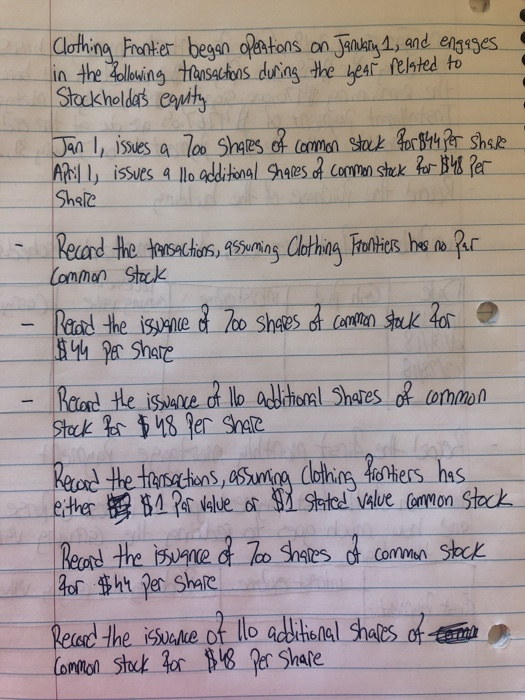 Clothing Frontier began operations on January 1, and engages
in the following transactions during the year related to
Stockholders equity
Jan 1, issues a 700 shares of common stock for $44 per share
April 1, issues a 110 additional shares of common stock for $48 per
Share
- Record the transactions, assuming Clothing Frontiers has no par
Common Stock
- Record the issuance of 700 shares of common stock for
$44 per share
- Record the issuance of 110 additional shares of common
stock for $48 per share
Record the transactions, assuming Clothing frontiers has
either $1 Par value or $1 stated value common stock
Record the issuance of 700 shares of common stock
for $44 per share
Record the issuance of 110 additional shares of
Common stock for $48 per share